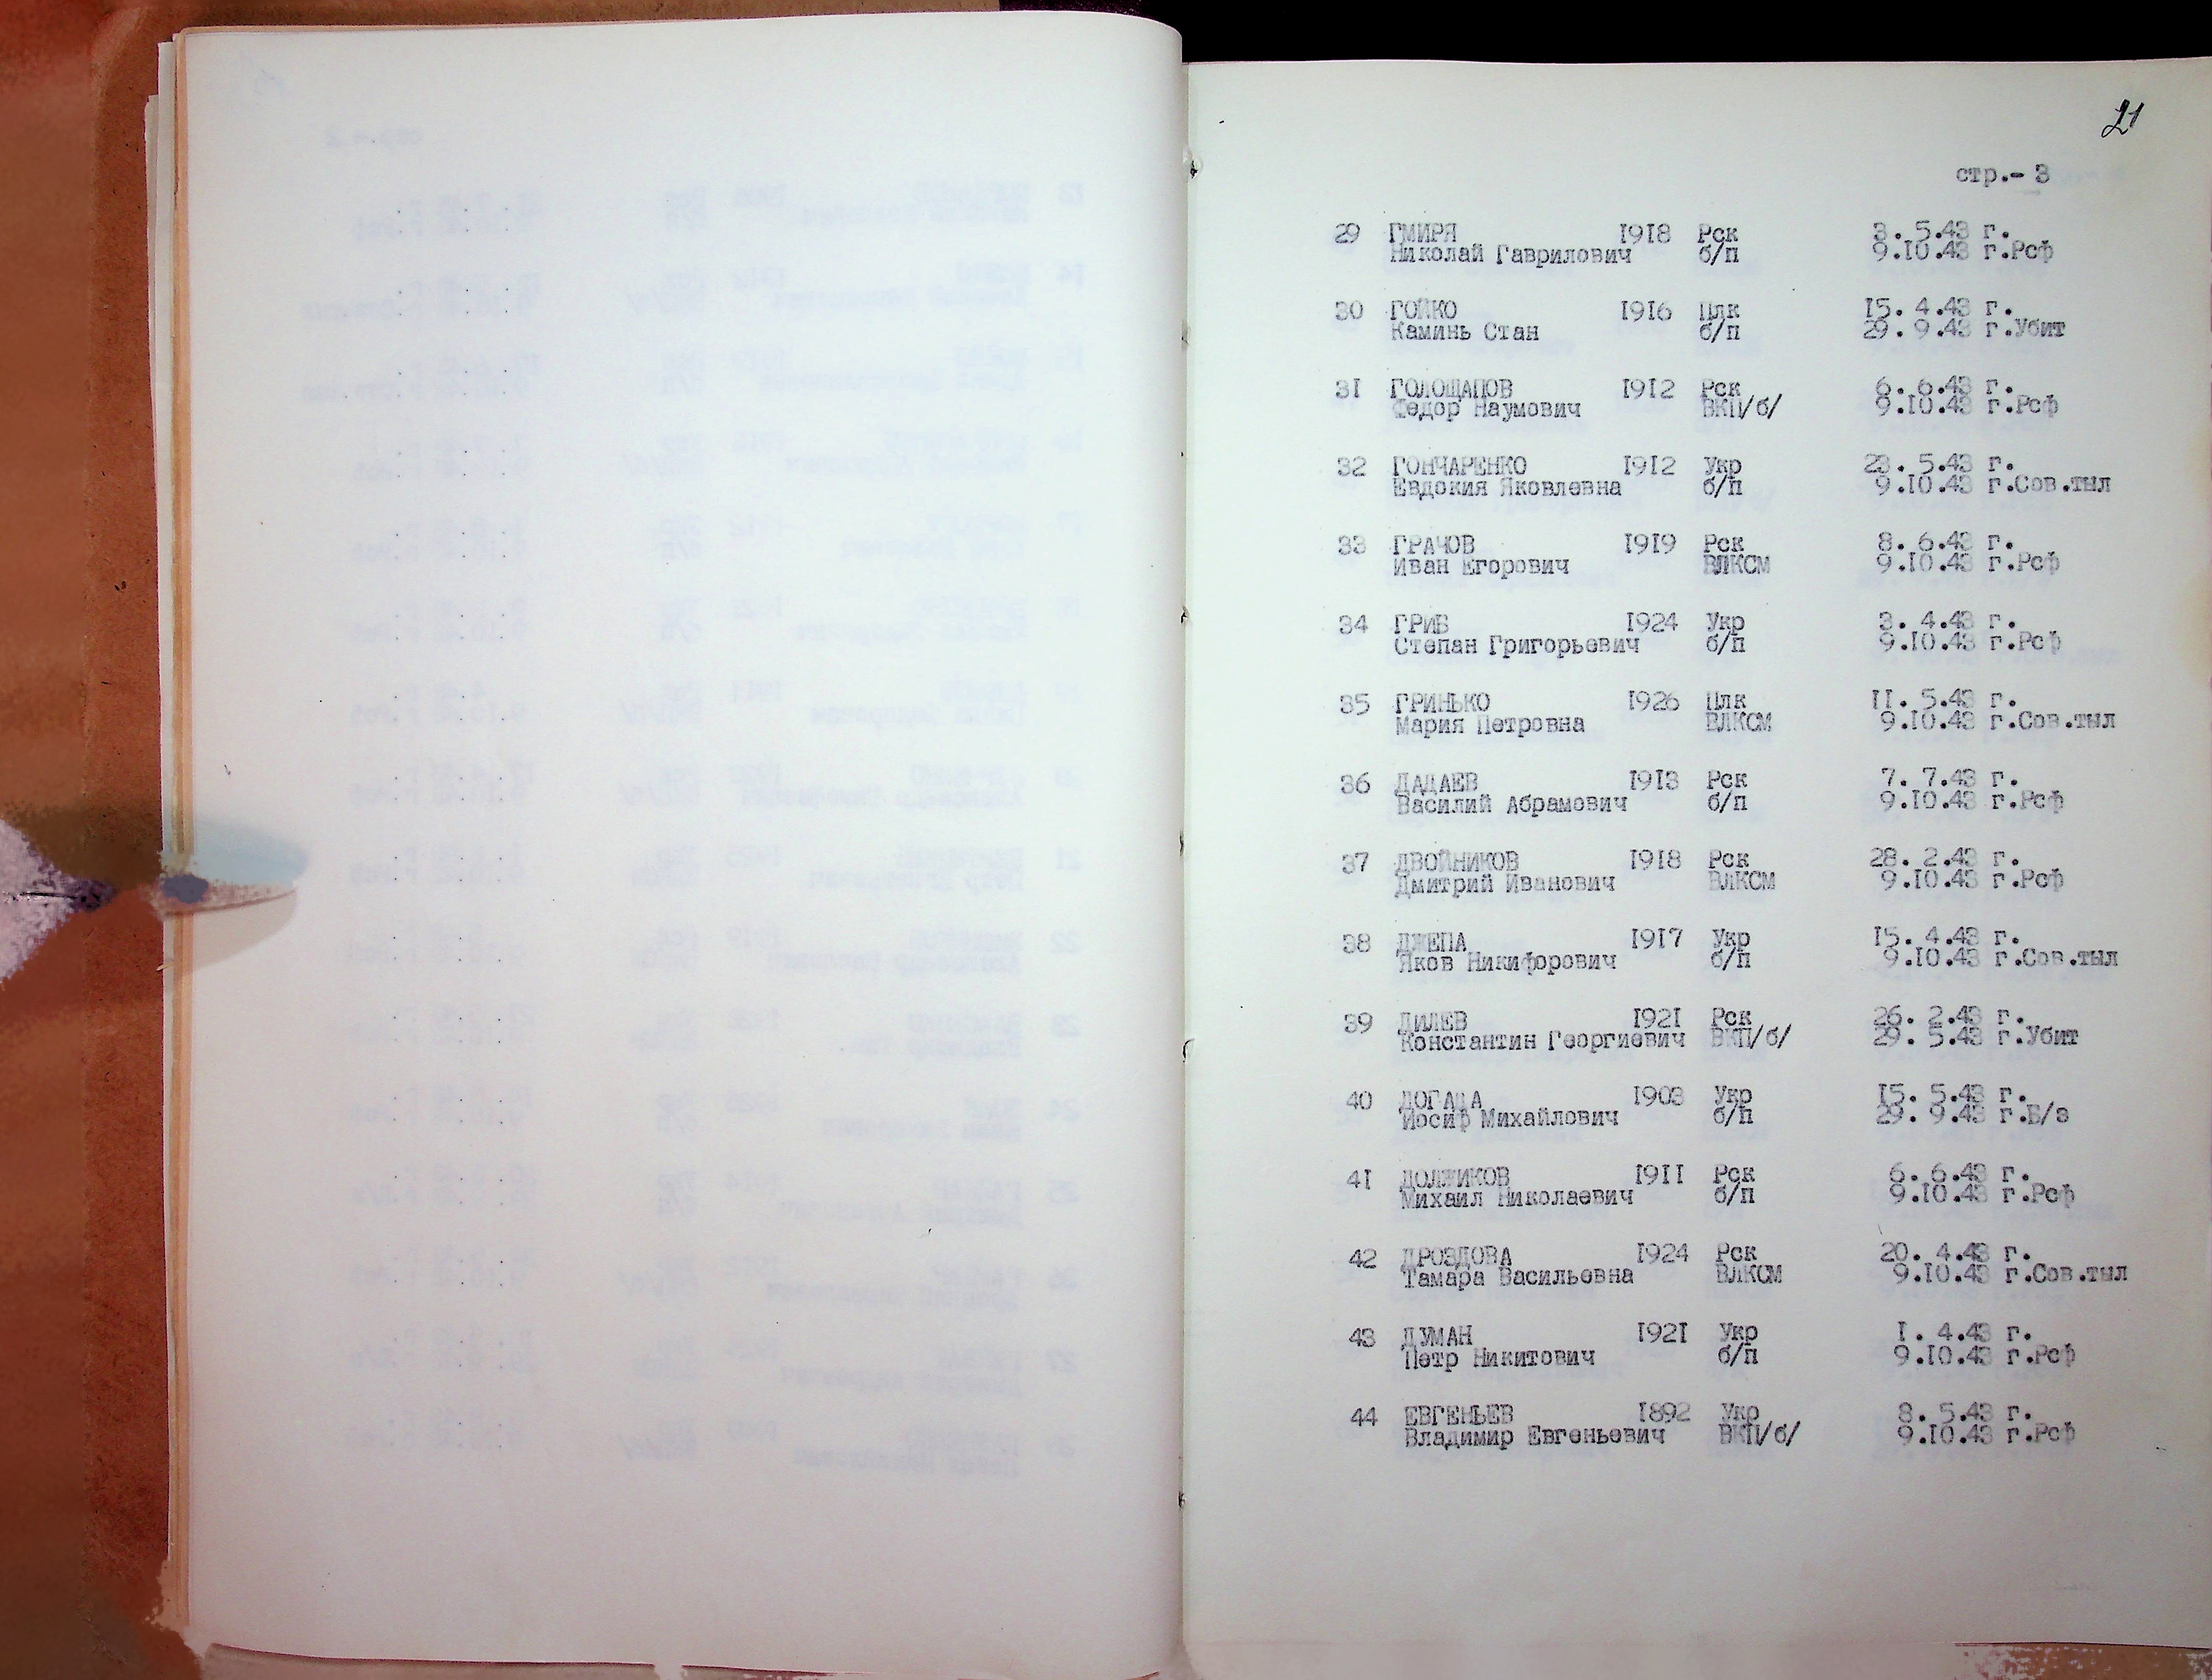 21
стр.- 3
29 ГМИРЯ 1918 Рск 3. 5.43 г.
Николай Гаврилович б/п 9.10.43 г.Рсф
30 ГОЙКО 1916 Плк 15. 4.43 г.
Каминь Стан б/п 29. 9.43 г.Убит
31 ГОЛОЩАПОВ 1912 Рск 6. 6.43 г.
Федор Наумович ВКП/б/ 9.10.43 г.Рсф
32 ГОНЧАРЕНКО 1912 Укр 23. 5.43 г.
Евдокия Яковлевна б/п 9.10.43 г.Сов.тыл
33 ГРАЧОВ 1919 Рск 8. 6.43 г.
Иван Егорович ВЛКСМ 9.10.43 г.Рсф
34 ГРИВ 1924 Укр 3. 4.43 г.
Степан Григорьевич б/п 9.10.43 г.Рсф
35 ГРИНЬКО 1926 Плк 11. 5.43 г.
Мария Петровна ВЛКСМ 9.10.43 г.Сов.тыл
36 ДАДАЕВ 1913 Рск 7. 7.43 г.
Василий Абрамович б/п 9.10.43 г.Рсф
37 ДВОЙНИКОВ 1918 Рск 28. 2.43 г.
Дмитрий Иванович ВЛКСМ 9.10.43 г.Рсф
38 ДЖЕПА 1917 Укр 15. 4.43 г.
Яков Никифорович б/п 9.10.43 г.Сов.тыл
39 ДИЛЕВ 1921 Рск 26. 2.43 г.
Константин Георгиевич ВКП/б/ 29. 5.43 г.Убит
40 ДОГАДА 1903 Укр 15. 5.43 г.
Иосиф Михайлович б/п 29. 9.43 г.Б/з
41 ДОЛЖИКОВ 1911 Рск 6. 6.43 г.
Михаил Николаевич б/п 9.10.43 г.Рсф
42 ДРОЗДОВА 1924 Рск 20. 4.43 г.
Тамара Васильевна ВЛКСМ 9.10.43 г.Сов.тыл
43 ДУМАН 1921 Укр 1. 4.43 г.
Петр Никитович б/п 9.10.43 г.Рсф
44 ЕВГЕНЬЕВ 1892 Укр 8. 5.43 г.
Владимир Евгеньевич ВКП/б/ 9.10.43 г.Рсф